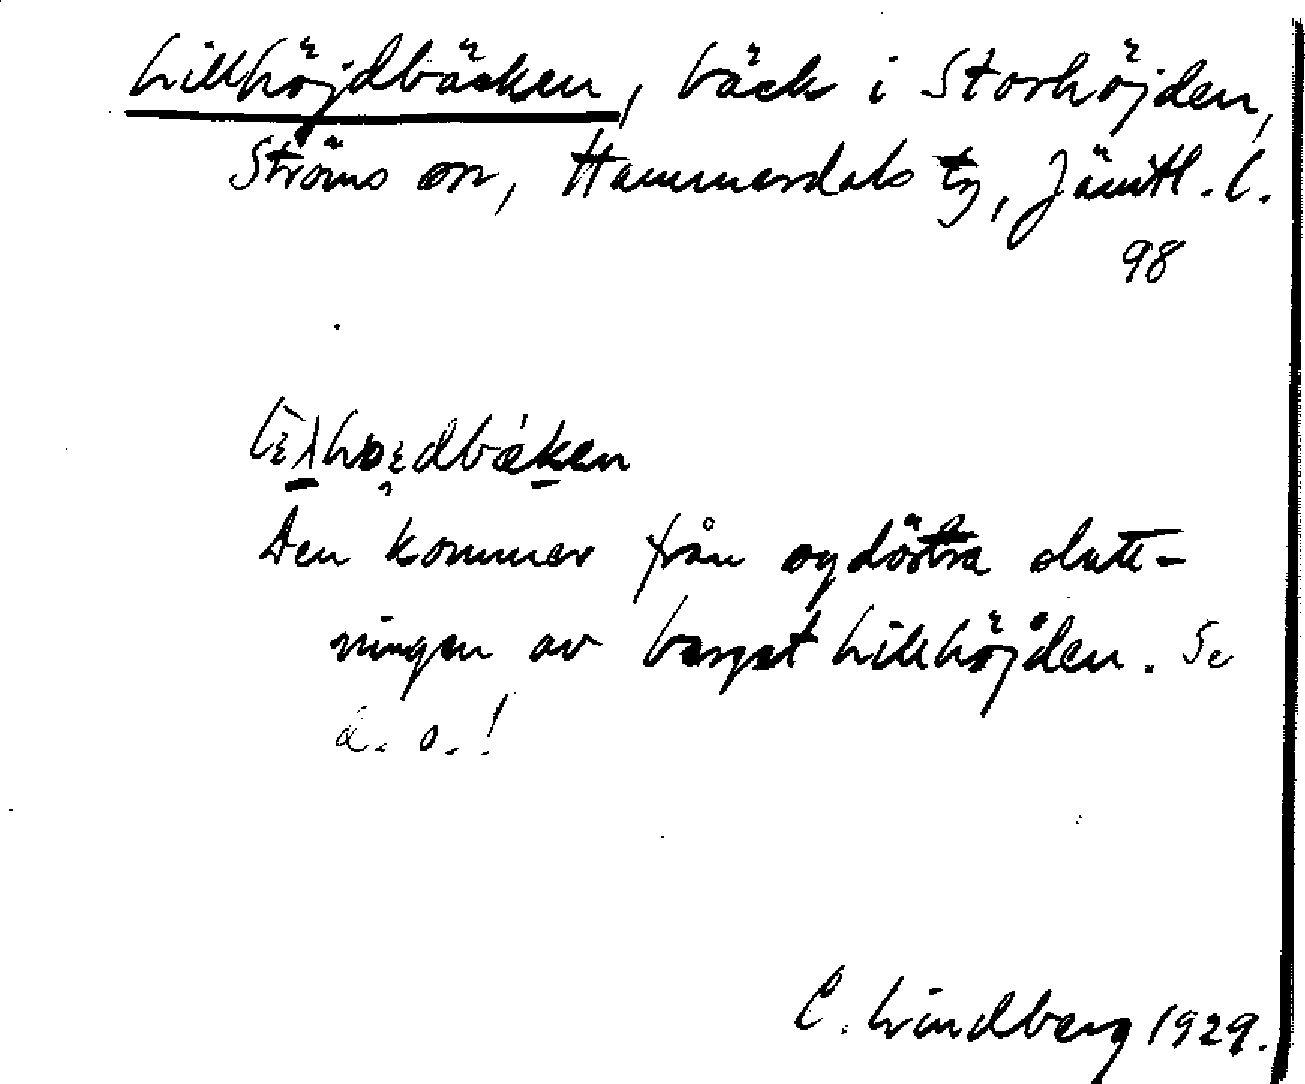 Lillhöjdbäcken, bäck i Storhöjden,
Ströms sn, Hammerdals tg, Jämtl. l.
98
Den kommer från sydöstra slutt-
ningen av berget Lillhöjden. Se
d. o.!
C. Lindberg 1929.